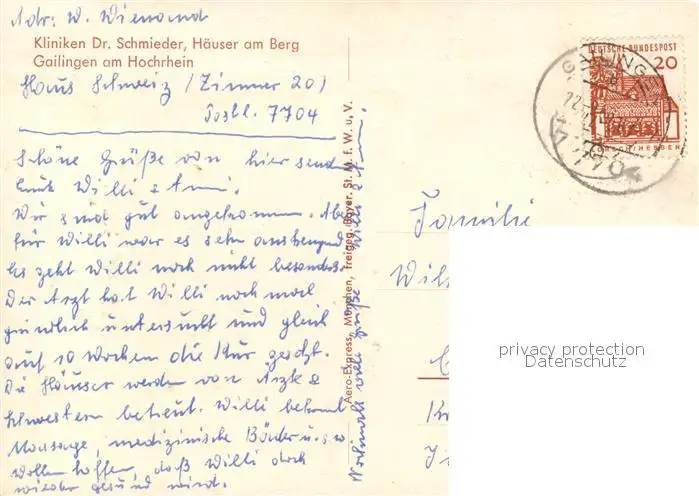 Adr: W. Wienand
Kliniken Dr. Schmieder, Häuser am Berg
Gailingen am Hochrhein
Haus Schweiz (Zimmer 20)
Postl. 7704
Schöne Grüße von hier senden
Euch Willi & Anni.
Wir sind gut angekommen. Aber
für Willi war es sehr anstrengend
Es geht Willi noch nicht besonders.
Der Arzt hat Willi noch mal
gründlich untersucht und gleich
auf 10 Wochen die Kur gesetzt.
Die Häuser werden von Ärzte &
Schwestern betreut. Willi bekommt
Massage, medizinische Bäder u.s.w.
Wollen hoffen, daß Willi doch
wieder gesund wird.
Nochmals viele Grüße Willi & Anni
Aero-Express, München, freigeg. Bayer. St. M. f. W. u. V.
DEUTSCHE BUNDESPOST
20
Familie
privacy protection
Datenschutz